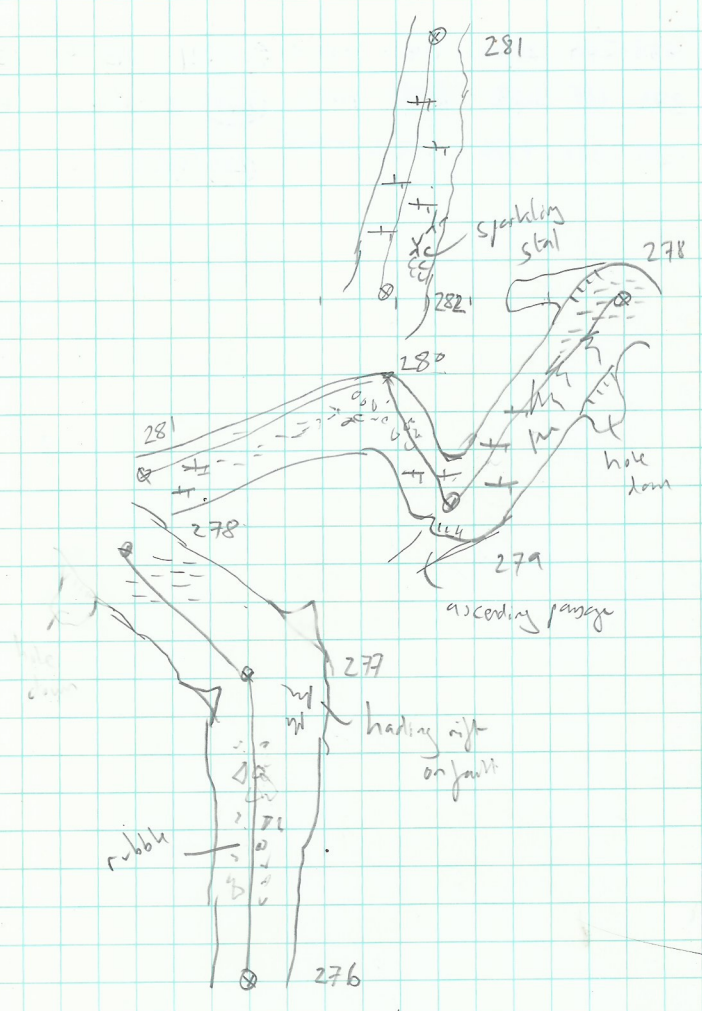 281
sparkling
stal
278
282
280
281
hole
down
278
279
ascending passage
277
hole
down
hading rift
on fault
rubble
276